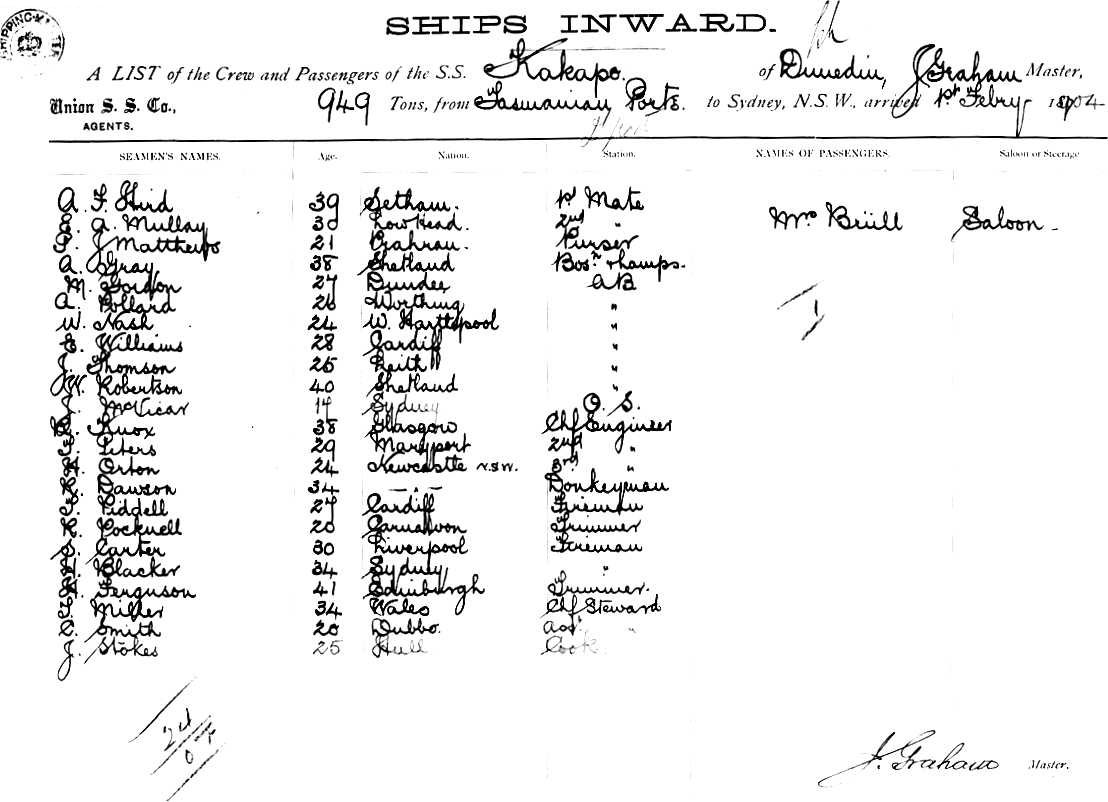 SHIPS INWARD.
A LIST of the Crew and Passengers of the S.S. Kakapo. of Dunedin, J Graham Master,
Union S. S. Co., 949 Tons, from Tasmanian Ports. to Sydney, N.S.W., arrived 1st Febry 1904
AGENTS.
SEAMEN'S NAMES. Age. Nation. Station. NAMES OF PASSENGERS. Saloon or Steerage
A. F. Hird 39 Setham. 1st Mate
A. Mullay 30 Low Head. 2nd " Mrs Brüll Saloon
J Matthews 21 Prahran. Purser
A. Gray 38 Shetland Bosn & Lamps.
M. Gordon 27 Dundee AB
A. Pollard 26 Worthing "
W. Nash 24 W. Harttlpool "
E. Williams 28 Cardiff "
J. Thomson 25 Leith "
W. Robertson 40 Shetland "
McVicar 17 Sydney O. S.
Knox 38 Glasgow Chf Engineer
Peters 29 Maryport 2nd
H. Orton 24 Newcastle N.S.W. 3rd "
Dawson 34 -"- Donkeyman
Piddell 27 Cardiff Fireman
R. Cocknell 20 Carnarvon Trimmer
S. Carter 30 Liverpool Fireman
H. Blacker 34 Sydney "
Ferguson 41 Edinburgh Trimmer.
Miller 34 Wales Chf Steward
C. Smith 20 Dubbo. Asst "
J. Stokes 25 Hull Cook
24
J. Graham Master.